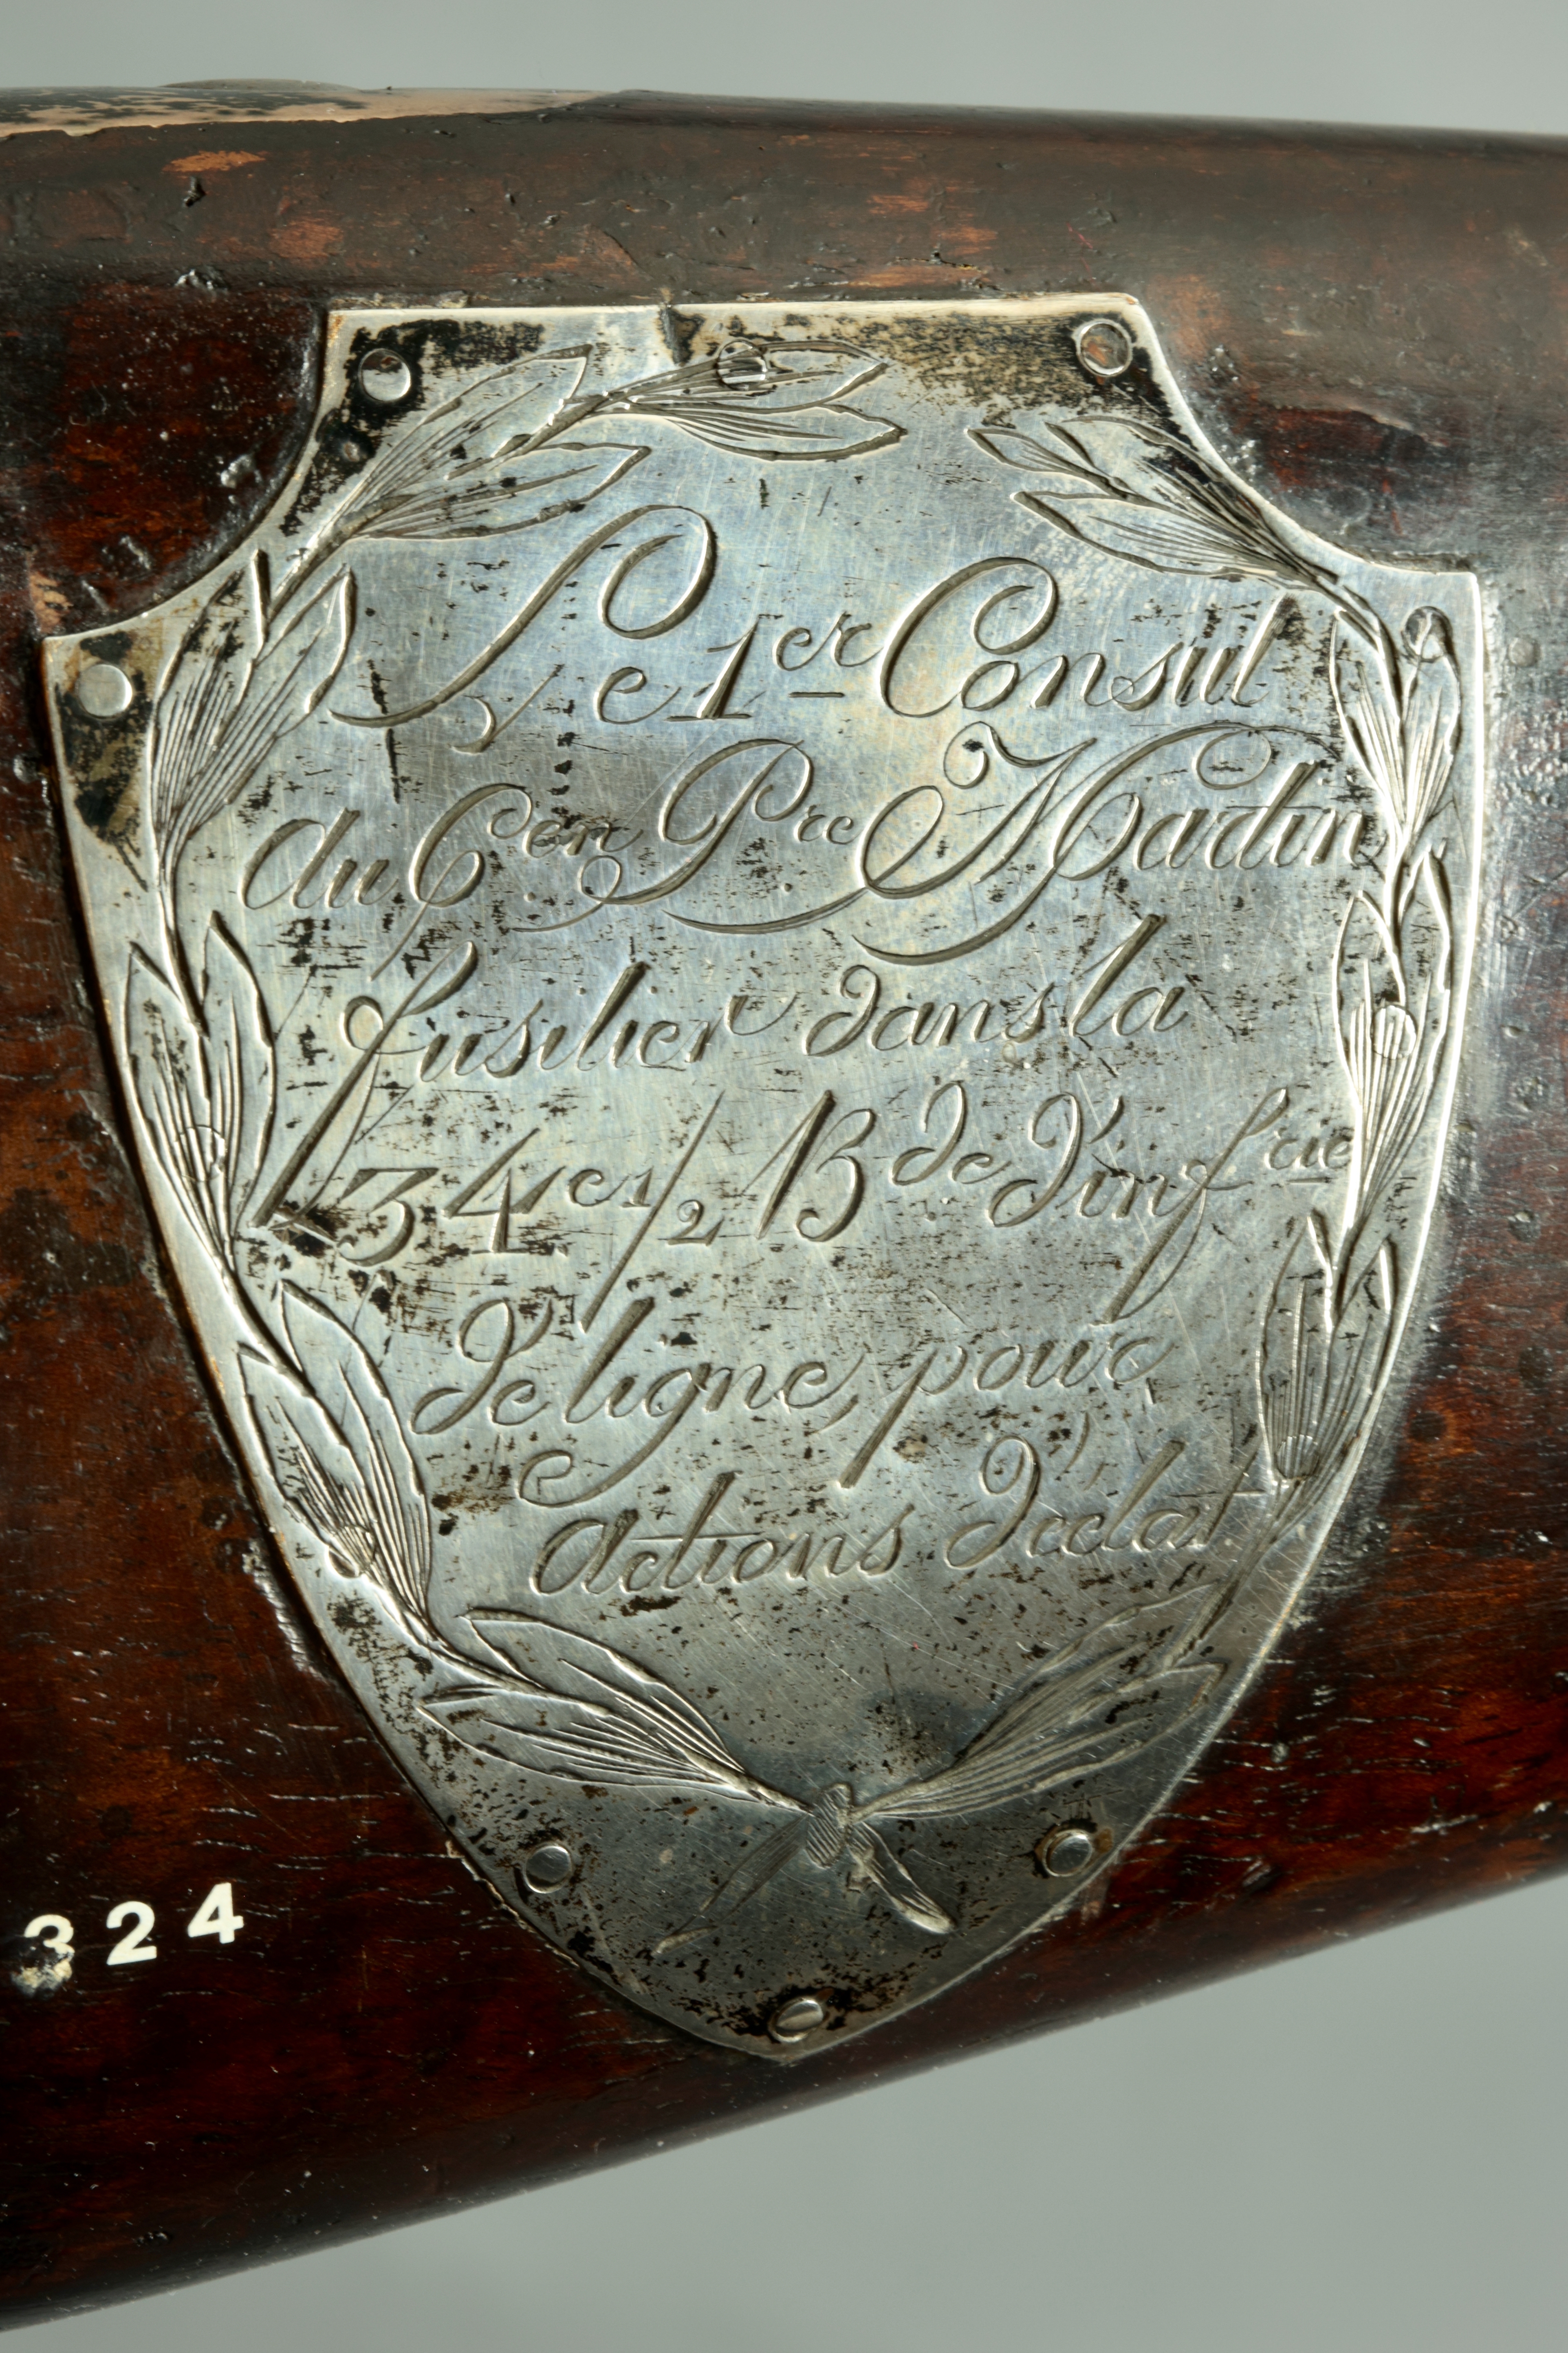 Le 1er Consul
au Cen Pre Martin
fusilier dans la
34e 1/2 B de d'infrie
de ligne, pour
actions d'éclat
324